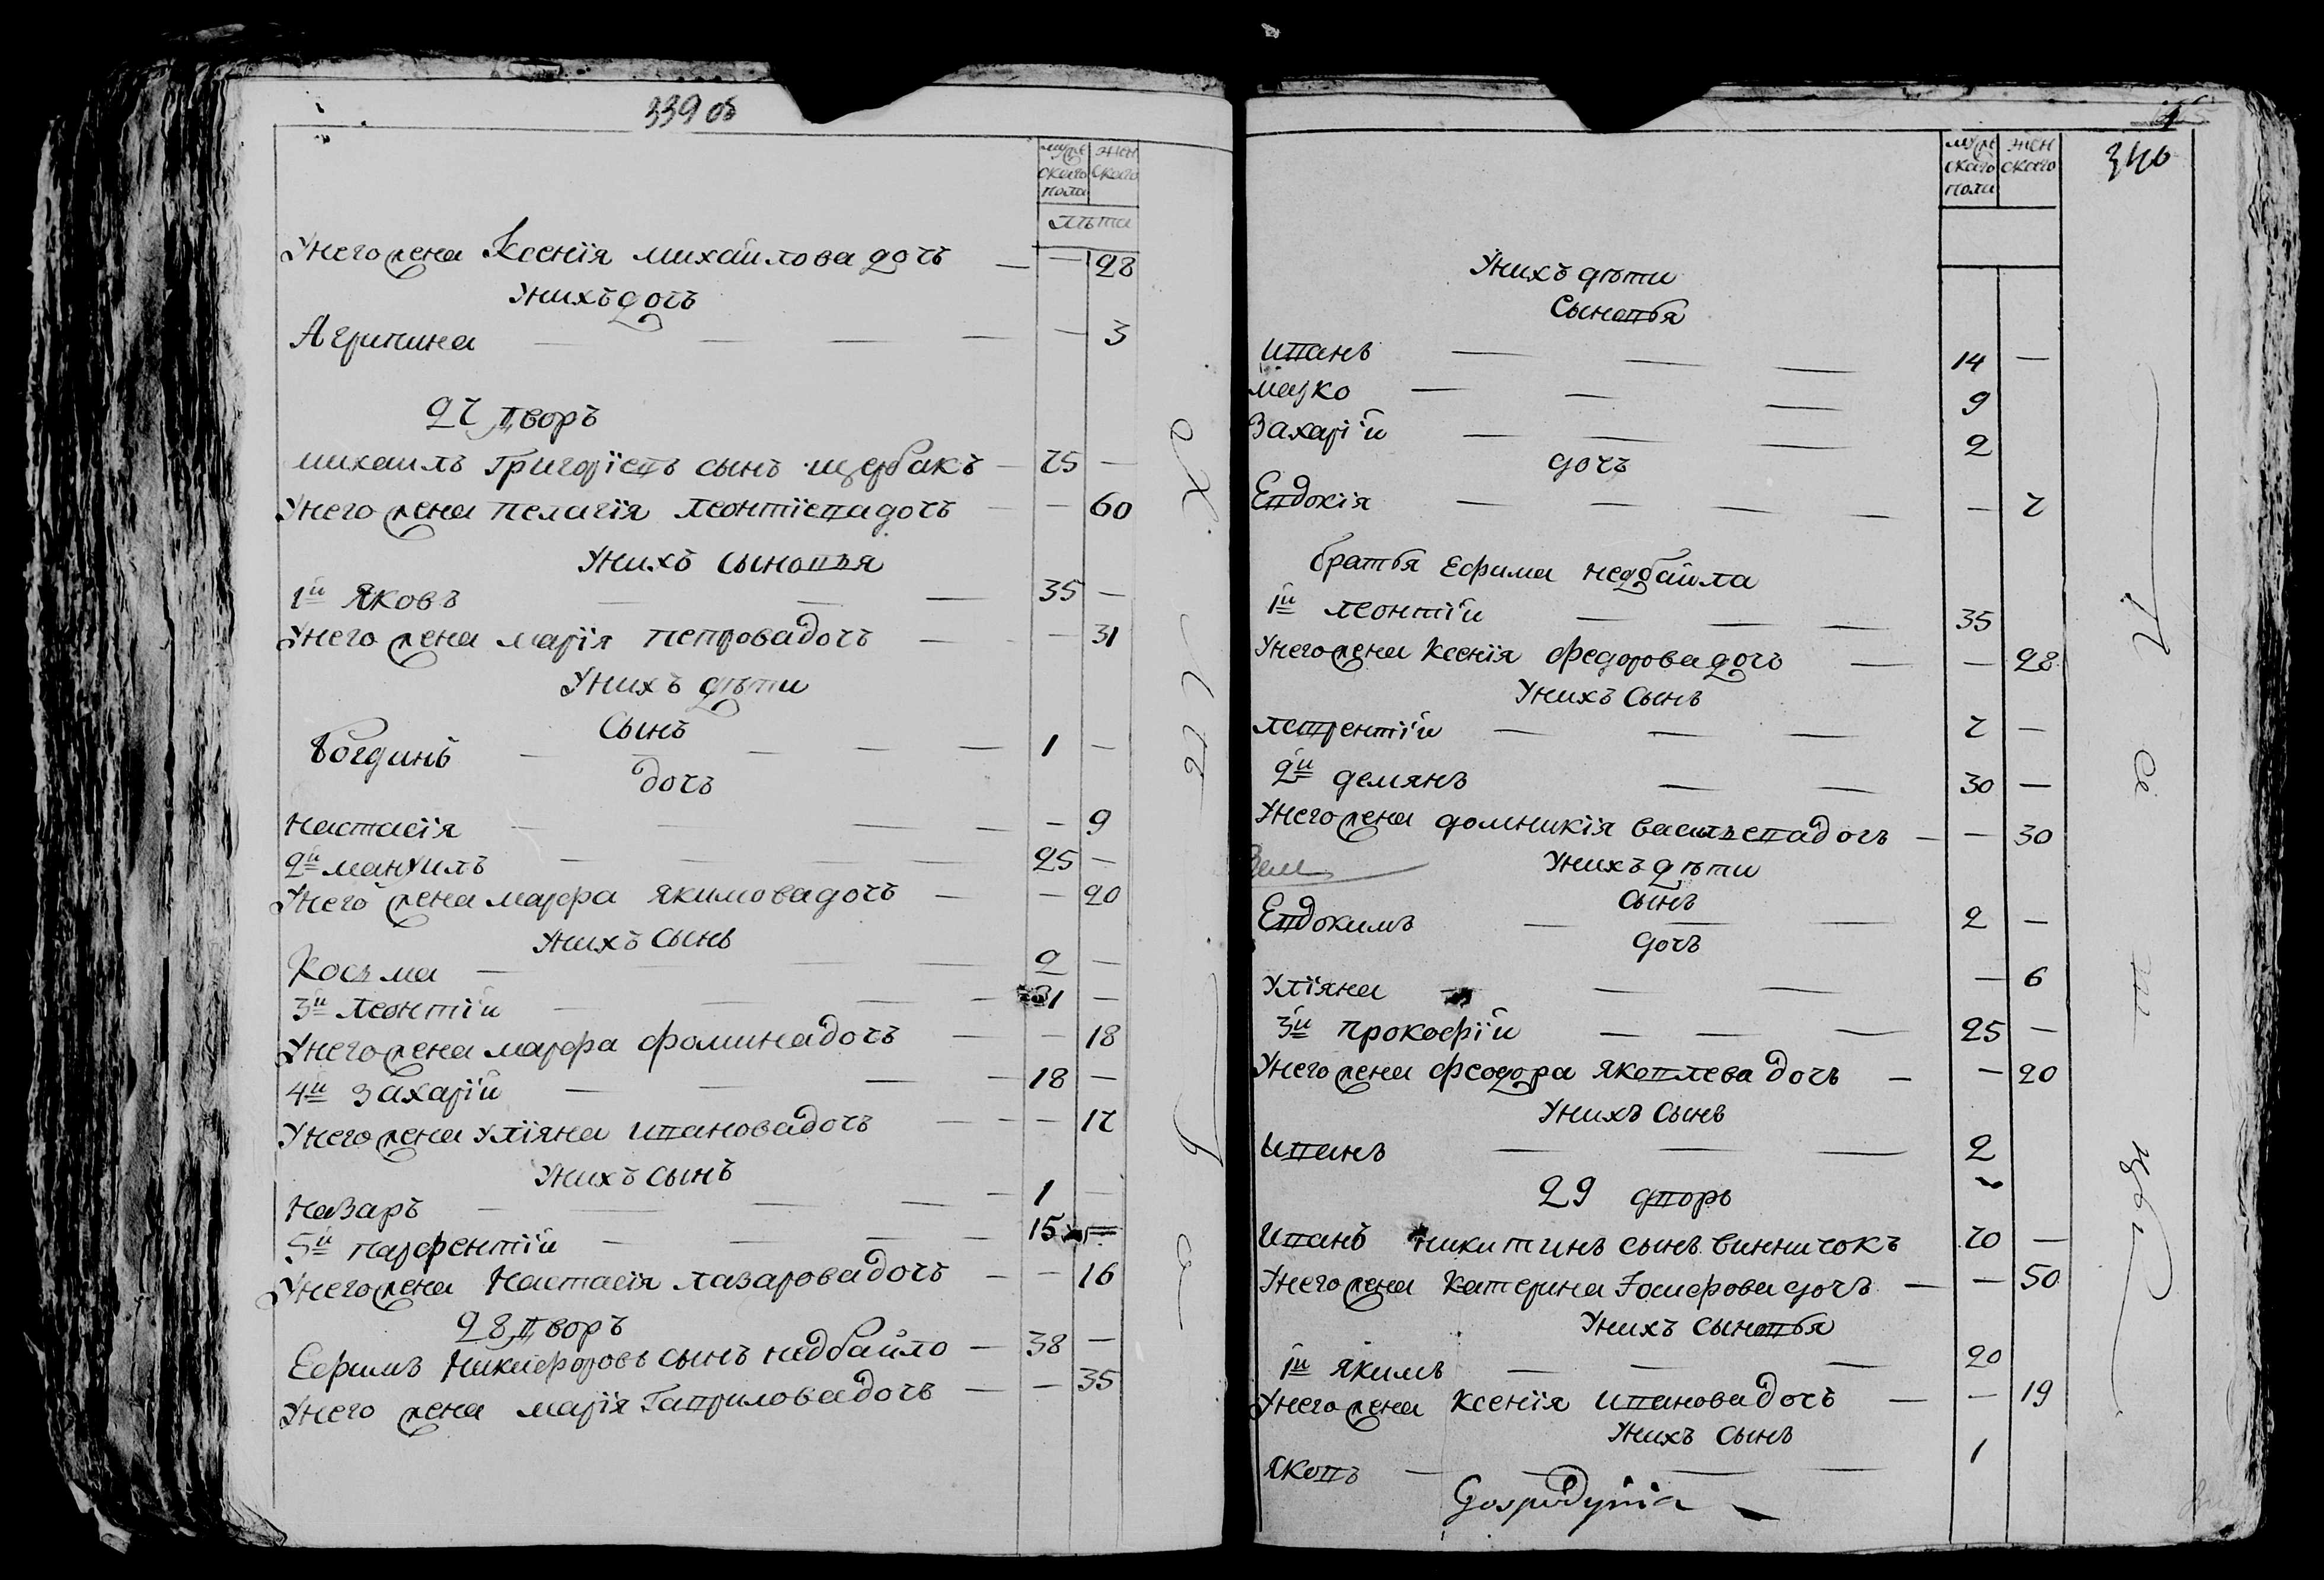 339 об
мужескаго пола
женскаго
лѣта
У него жена Ксенїя михайлова дочъ — — 28
У нихъ дочъ
Агрипина — — — — — 3
27 дворъ
михаилъ Григорїевъ сынъ щербакъ — 75 —
У него жена пелагїя леонтїева дочъ — — 60
У нихъ сыновья
1й Яковъ — — — 35 —
У него жена марїя петрова дочъ — — 31
У нихъ дѣти
Сынъ
богданъ — — — — — 1 —
дочъ
настасїя — — — — — 9
2й мануилъ — — — — 25 —
У него жена марфа якимова дочъ — — 20
У нихъ сынъ
Козьма — — — — 2 —
3й леонтїй — — — — 31 —
У него жена марфа фомина дочъ — — 18
4й захарїй — — — — 18 —
У него жена улїяна иванова дочъ — — — 17
У нихъ сынъ
назаръ — — — — — 1 —
5й парфентїй — — — — 15 —
У него жена настасїя лазарова дочъ — — 16
28 дворъ
Ефимъ никифоровъ сынъ недбайло — 38 —
У него жена марїя гаврилова дочъ — — 35
мужескаго пола
женскаго
340
У нихъ дѣти
Сыновья
иванъ — — — 14 —
марко — — — 9
Захарїй — — — 2
дочъ
Евдокїя — — — — — 7
братья ефима недбайла
1й леонтїй — — — 35
У него жена ксенїя федорова дочъ — — 28
У нихъ сынъ
лаврентїй — — — 7 —
2й демянъ — — 30 —
У него жена домникїя васильева дочъ — — 30
У нихъ дѣти
сынъ
Евдокимъ — — — 2 —
дочъ
улїяна — — — 6
3й прокофїй — — — 25 —
У него жена феодора яковлева дочъ — — 20
У нихъ сынъ
иванъ — — — 2
29 дворъ
иванъ никитинъ сынъ винничокъ 70 —
У него жена катерина Iосифова дочъ — — 50
У нихъ сыновья
1й якимъ — — — 20
У него жена ксенїя иванова дочъ — — 19
У нихъ сынъ
яковъ — — — — 1
Gospodynia